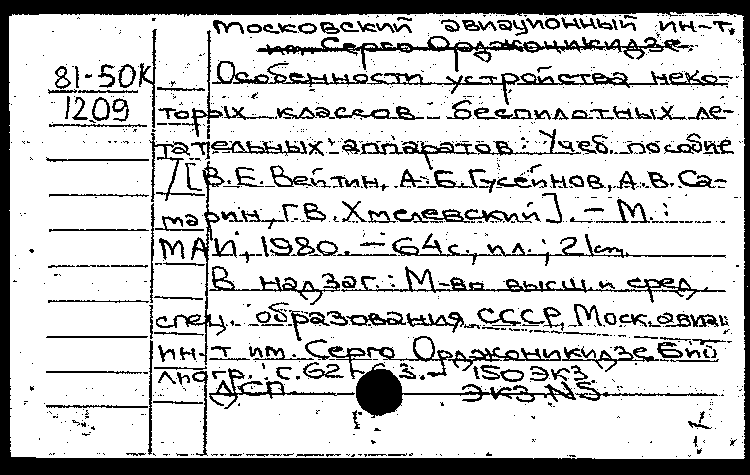 Московский авиационный ин-т.
им. Серго Орджоникидзе.
81-50К Особенности устройства неко-
1209 торых классов беспилотных ле-
тательных аппаратов: Учеб. пособие
/[В.Е. Вейтин, А.Б. Гусейнов, А.В. Са-
марин, Г.В. Хмелевский]. – М.:
МАИ, 1980. – 64с., ил.; 21см.
В надзаг.: М-во высш. и сред.
спец. образования СССР, Моск. авиац.
ин-т им. Серго Орджоникидзе. Биб
лиогр.: с. 62-63. 150 экз.
ДСП Экз. N5.